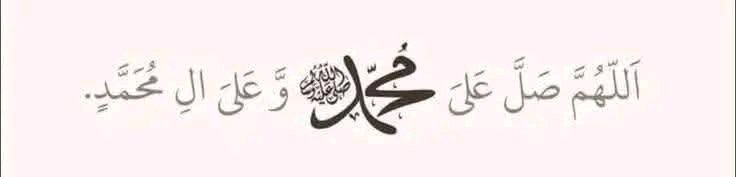 اَللّهُمَّ صَلَّ عَلىَ مُحمّد ﷺ وَّ عَلىَ الِ مُحَمَّدٍ.